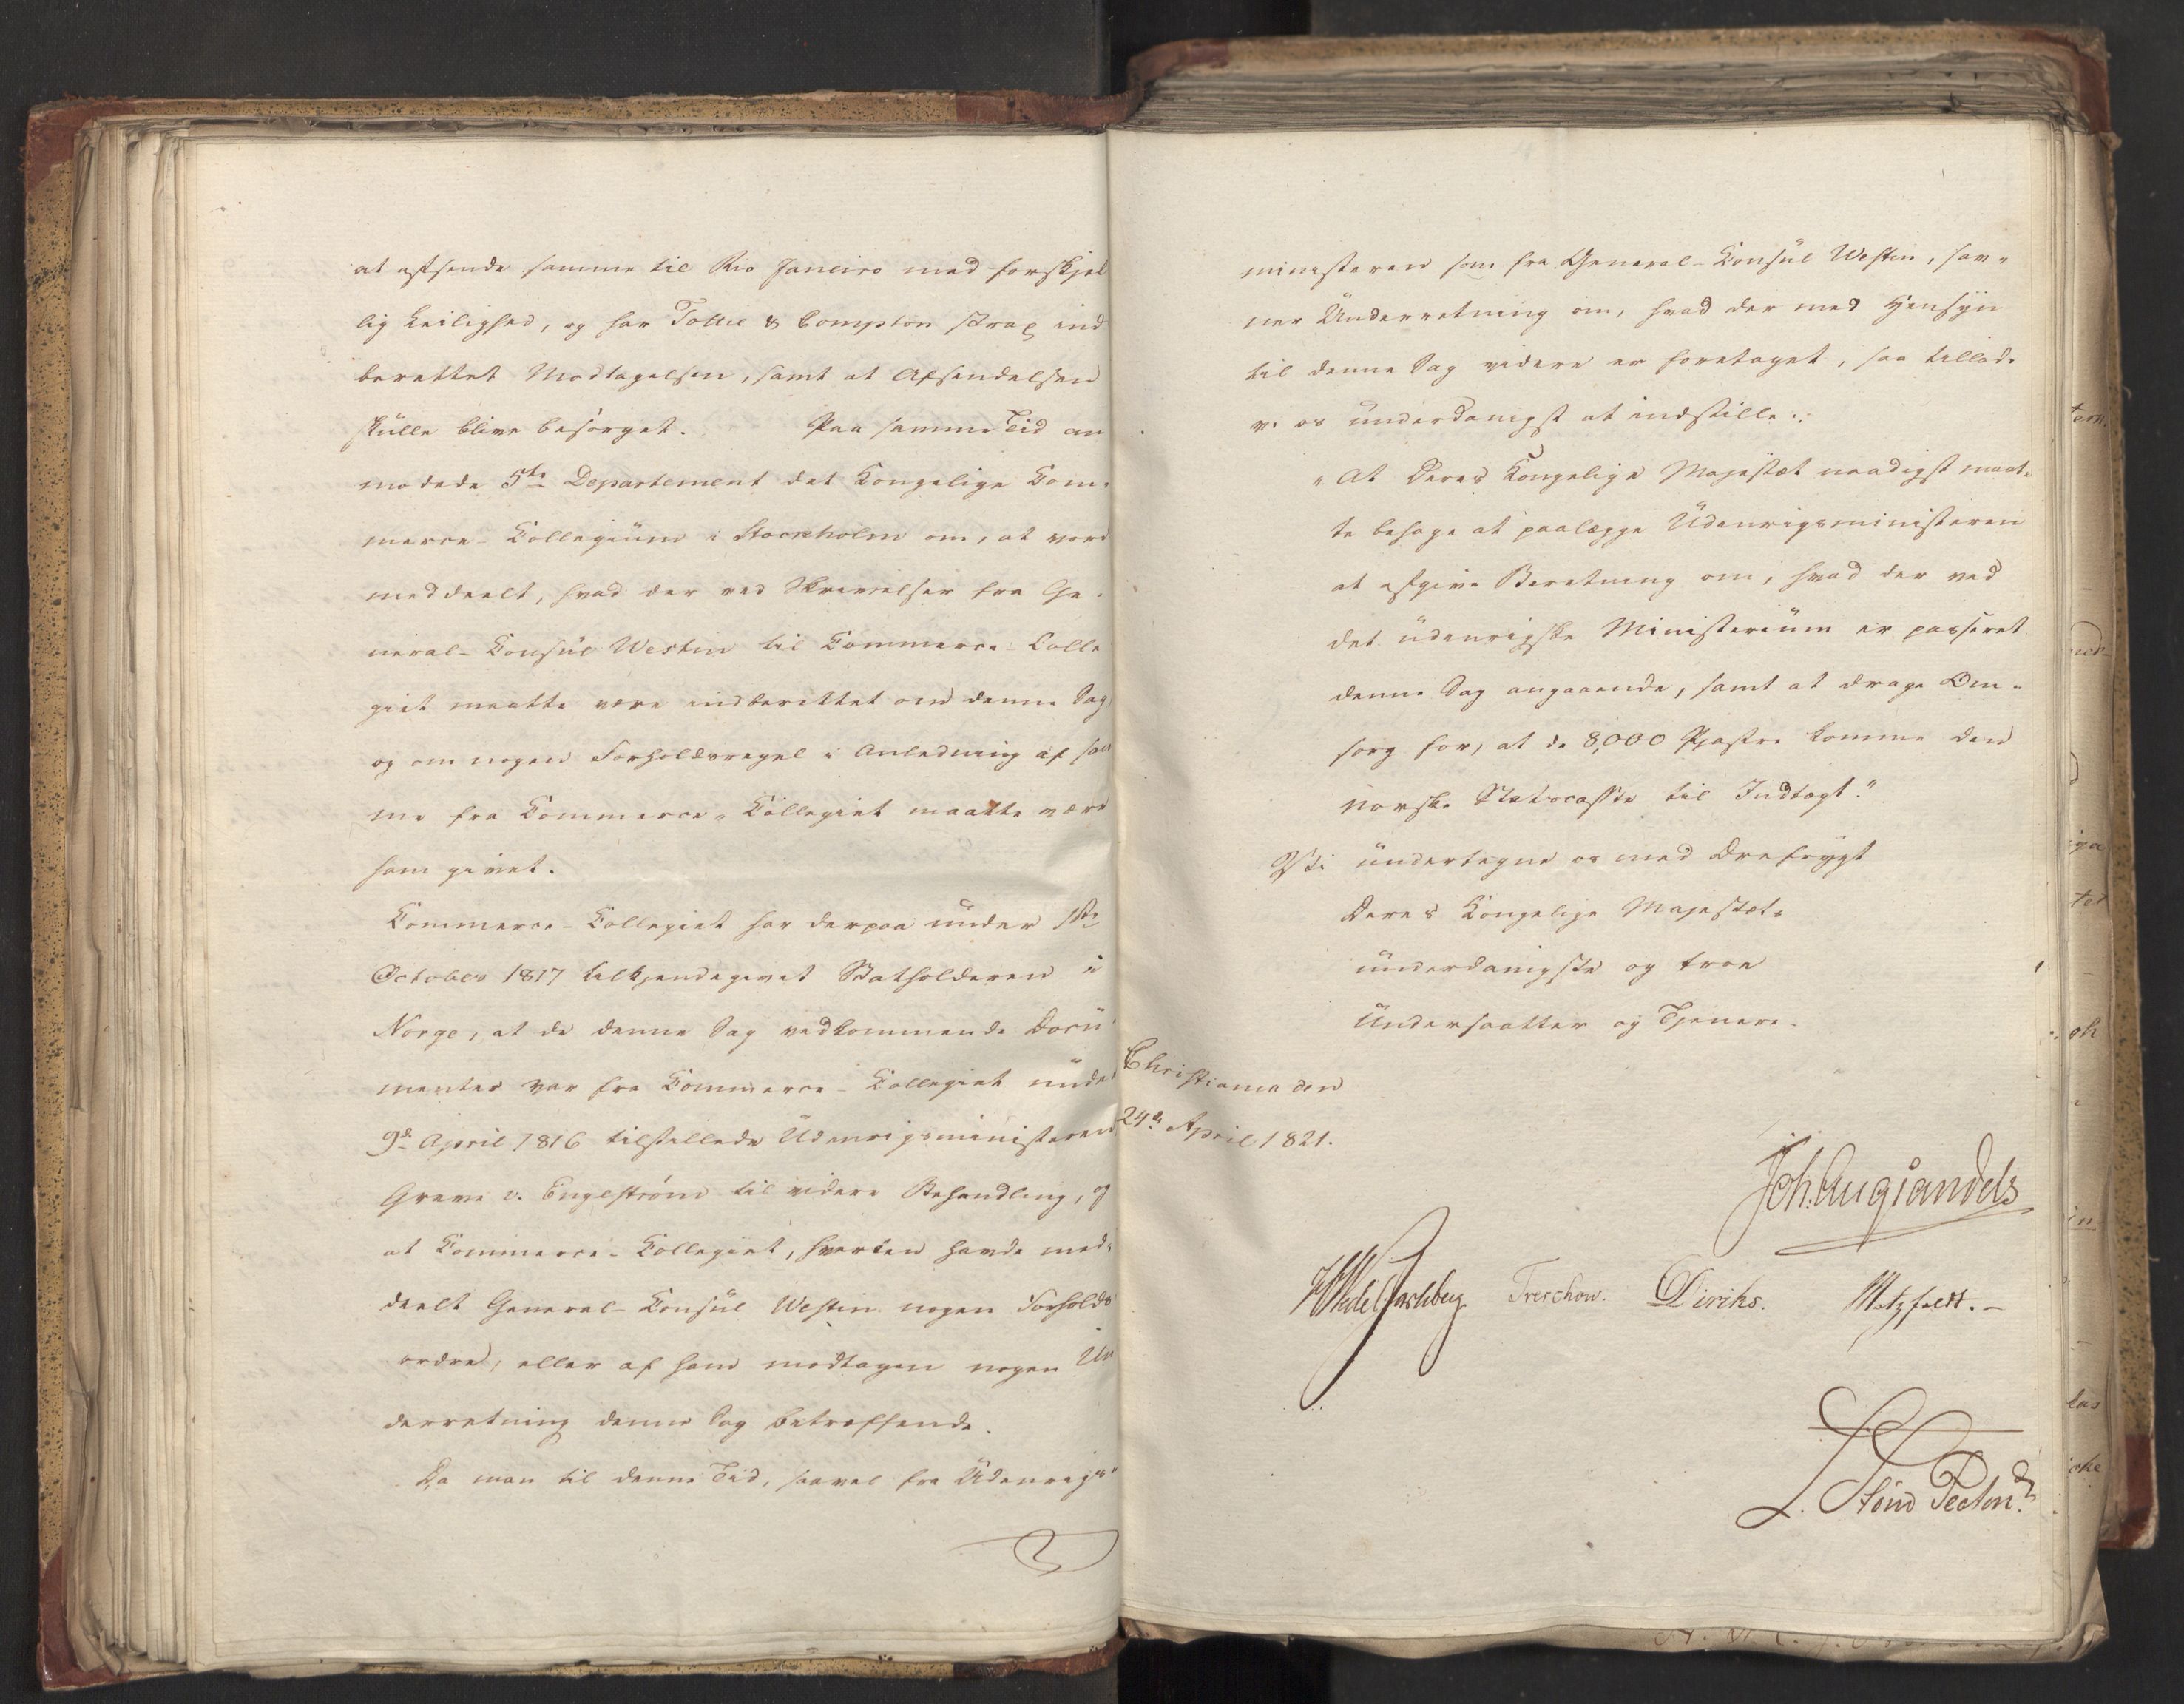 at afsende samme til Rio Janeiro med forskjel
lig Leilighed, og har Tottie & Compton strax ind
berettet Modtagelsen, samt at Afsendelsen
skulle blive besørget. Paa samme Tid an
modede 5te Departement det Kongelige Com-
merce-Collegium i Stockholm om, at vord
meddeelt, hvad der ved Skrivelser fra Ge-
neral-Consul Westin til Commerce-Colle
giet maatte være indberettet om denne Sag
og om nogen Forholdsregel i Anledning af sam
me fra Commerce-Collegiet maatte være
ham givet.
Commerce-Collegiet har derpaa under
October 1817 tilkjendegivet Statholderen i
Norge, at de denne Sag vedkommende Docu
menter var fra Commerce-Collegiet under
9de April 1816 tilstillede Udenrigsministeren
Greve v. Engeström til videre Behandling, og
at Commerce-Collegiet, hverken havde med-
deelt General-Consul Westin nogen Forholds
ordre, eller af ham modtagen nogen Un
derretning denne Sag betræffende.
Da man til denne Tid, saavel fra Udenrigs-
ministeren som fra General-Consul Westin, sav-
ner Underretning om, hvad der med Hensyn
til denne Sag videre er foretaget, saa tillade
vi os underdanigst at indstille:
"At Deres Kongelige Majestæt naadigst maat-
te behage at paalægge Udenrigsministeren
at afgive Beretning om, hvad der ved
det udenrigske Ministerium er passeret
denne Sag angaaende, samt at drage Om-
sorg for, at de 8,000 Pjastre komme den
norske Statscasse til Indtægt."
Vi undertegne os med Ærefrygt
Deres Kongelige Majestæts
underdanigste og troe
Undersaatter og Tjenere.
Christiania den
24de April 1821.
Joh. Aug Sandels
HWedel Jarlsberg Treschow. Diriks. Motzfeldt.